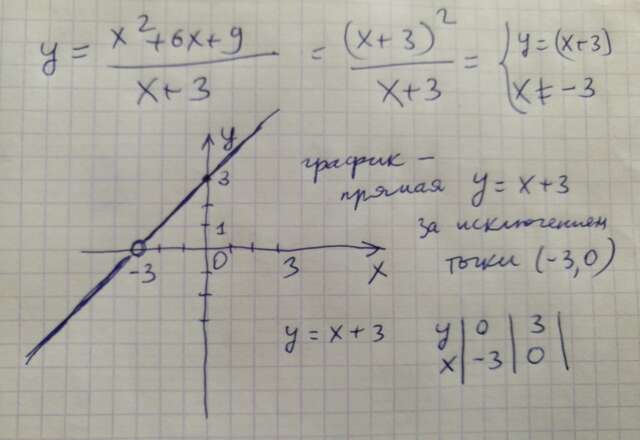 y = x²+6x+9 / x+3 = (x+3)² / x+3 = { y=(x+3) x≠-3
y
3
1
-3 0 3 x
график –
прямая y = x+3
за исключением
точки (-3,0)
y = x+3
y | 0 | 3 |
x | -3 | 0 |